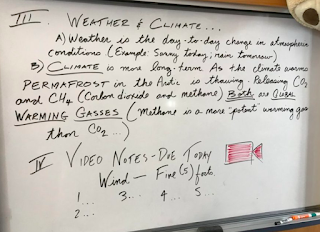 III. WEATHER & CLIMATE...
A) Weather is the day-to-day change in atmospheric
conditions (Example: Sunny today; rain tomorrow)
B) CLIMATE is more long-term As the climate warms
PERMAFROST in the Artic is thawing. Releasing CO2
and CH4 (Carbon dioxide and methane) Both are
WARMING GASSES (Methane is a more "potent" warming gas
than CO2...)
IV VIDEO NOTES-DUE TODAY
Wind — Five (5) facts
1... 3... 4... 5...
2...